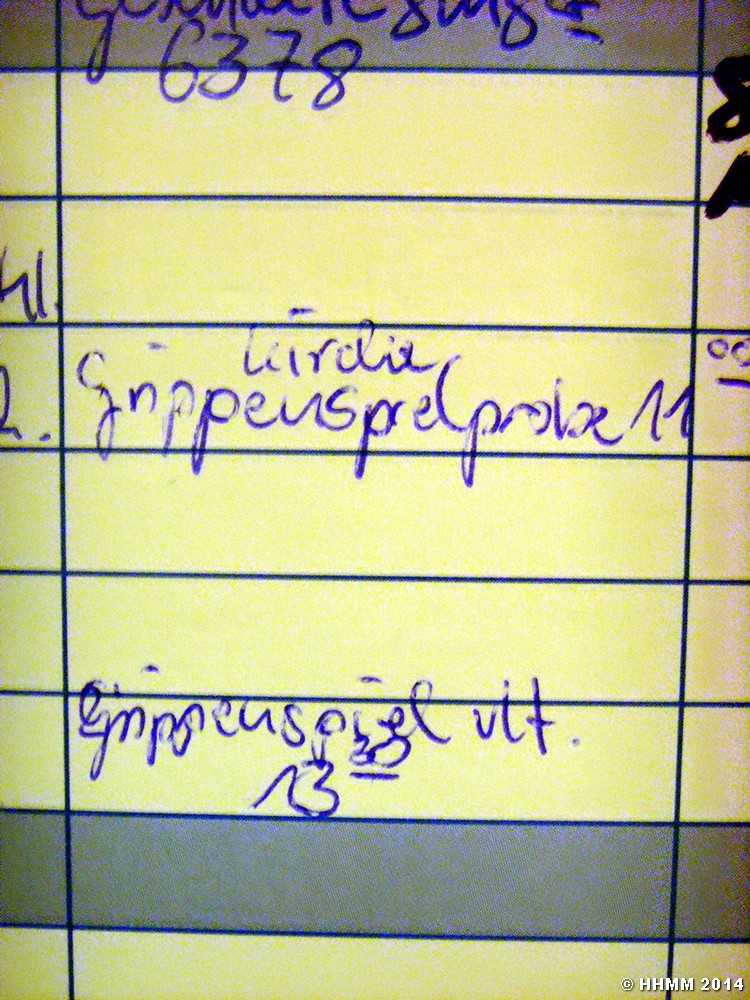 6378
Kirche
Grippenspielprobe 11 00
Grippenspiel vlt.
13 30
© HHMM 2014